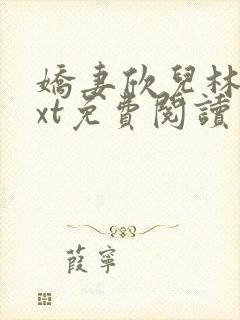 嬌妻欣兒林
xt免費閱讀
葭寧